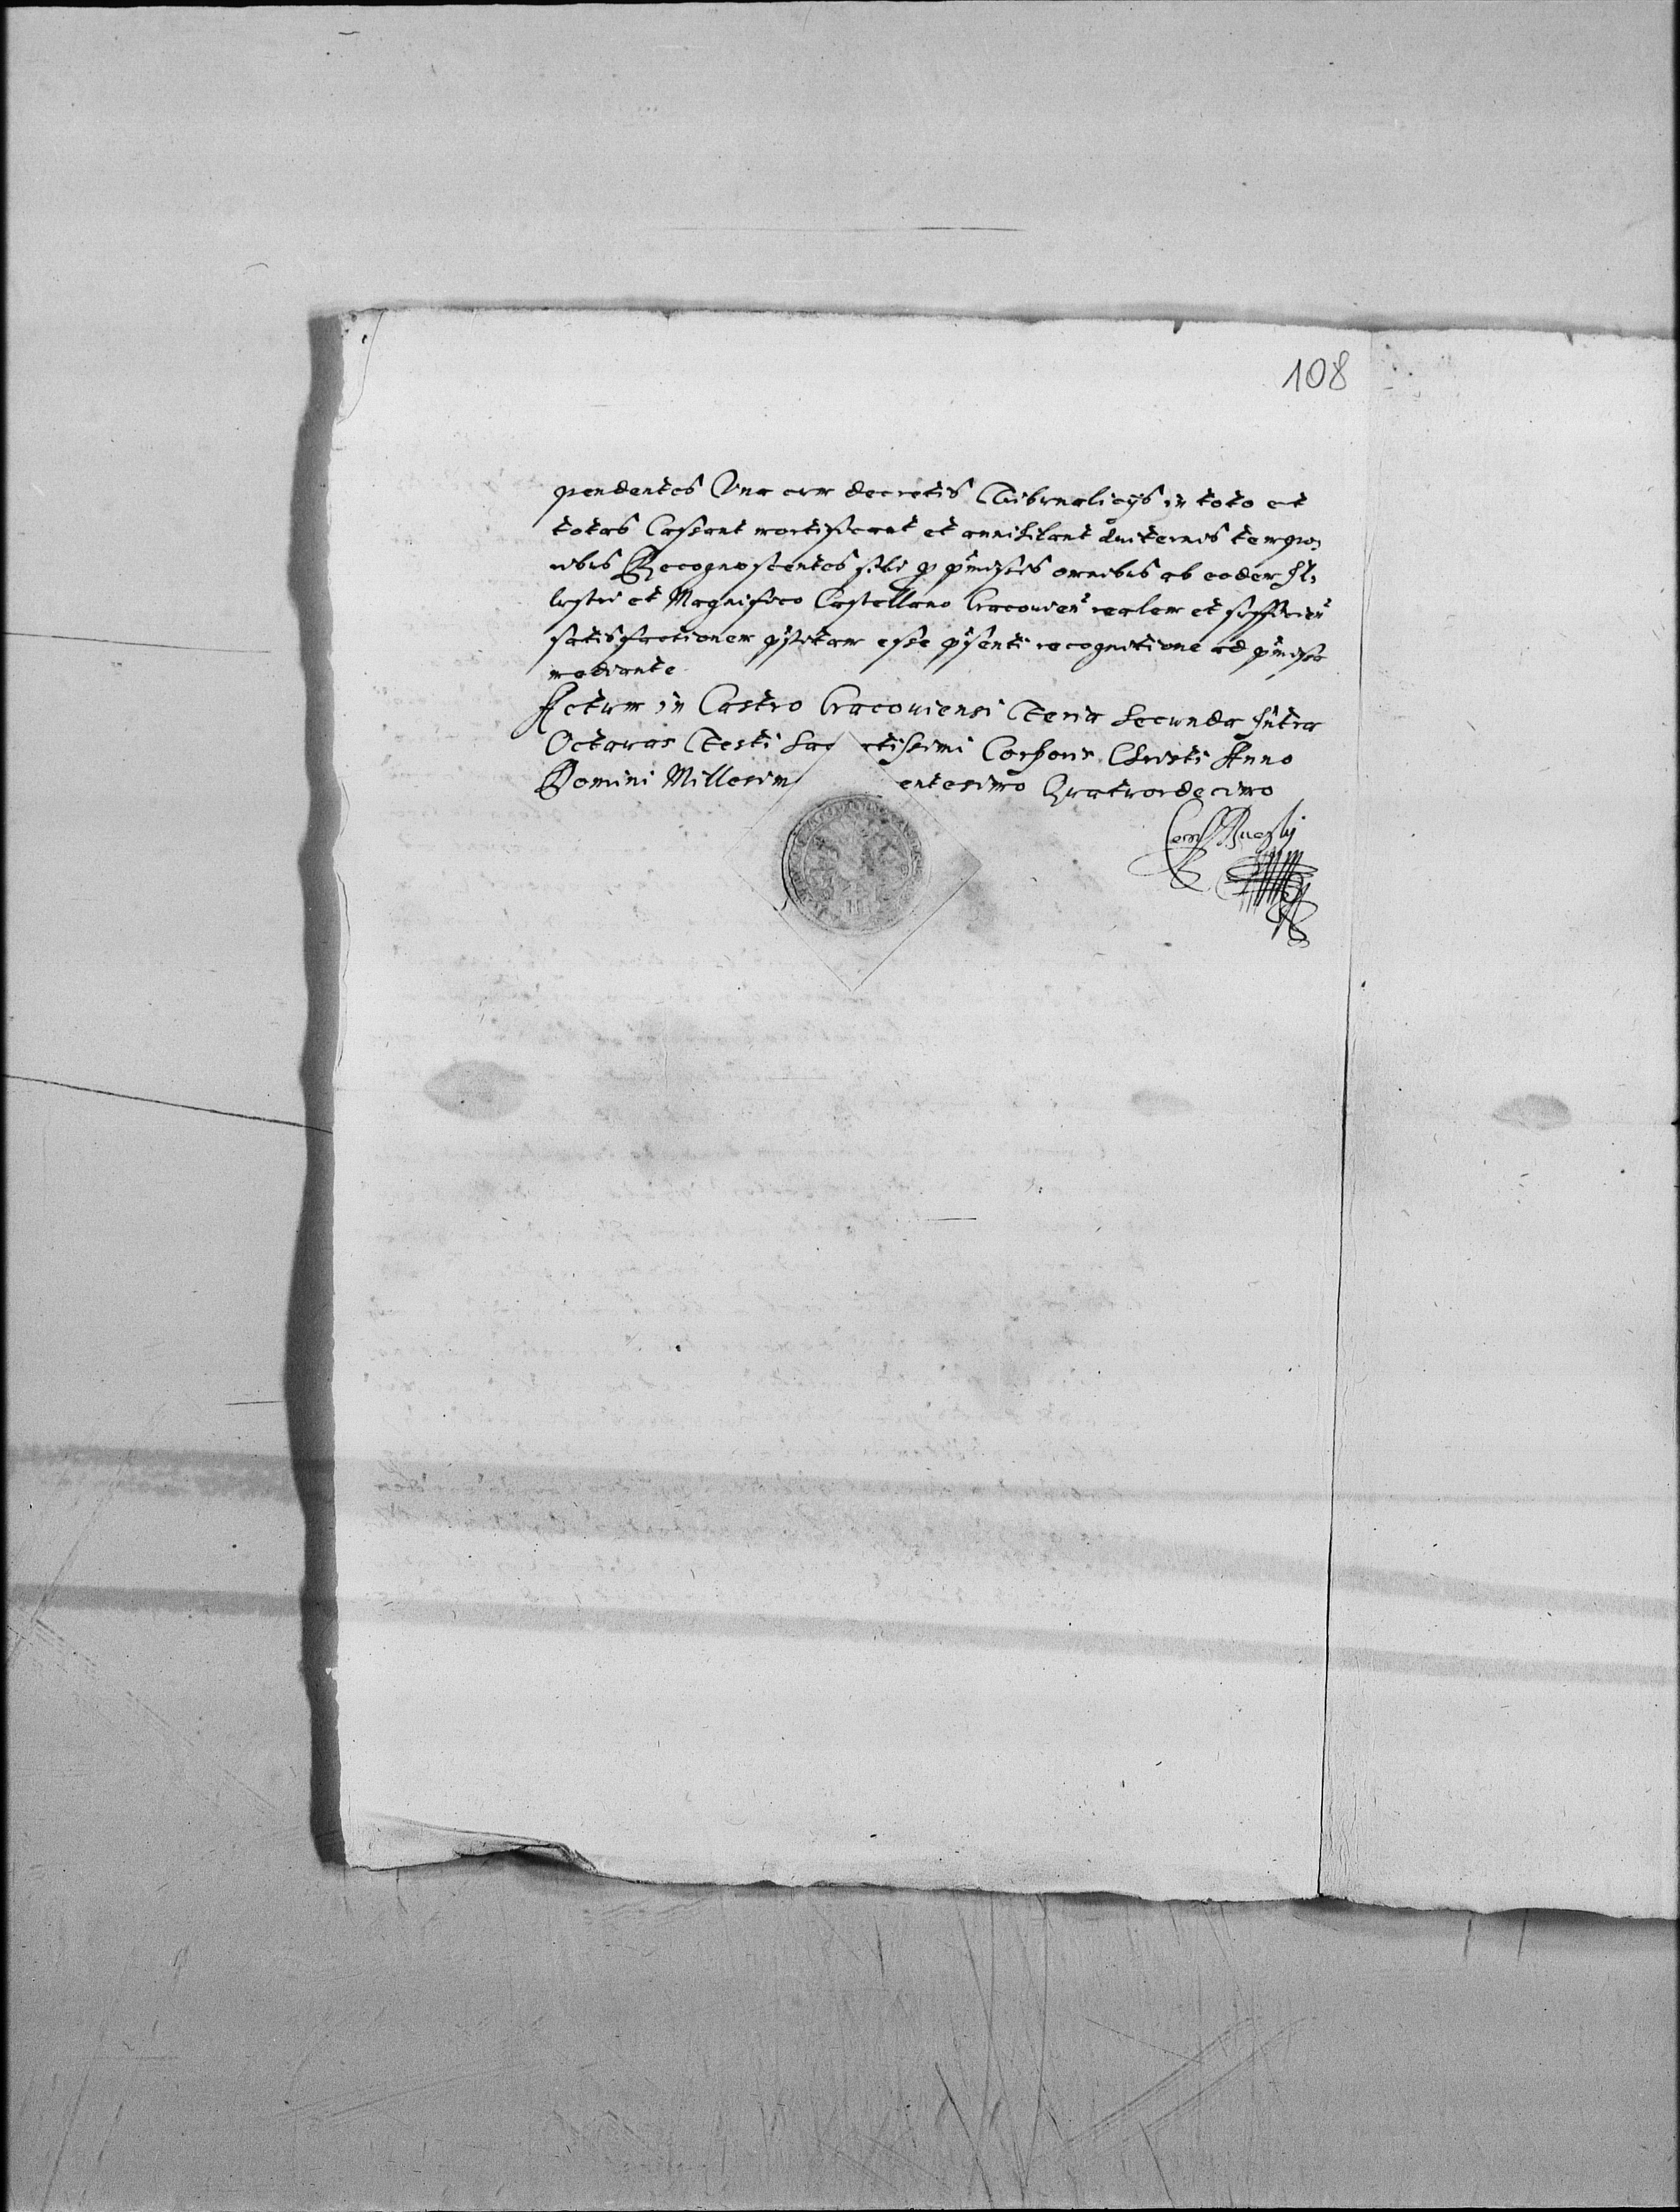 108
pendentes Una cum decretis Tribunaliciis in toto et
totas Cassant mortificant et annihilant aviternis tempo,
ribus Recognoscentes sibi p pmissis omnibus ab eodem Il,
lustri et Magnifico Castellano Cracovien realem et sufficien
satisfactionem pstitam esse psenti recognitione ad pmissa
mediante
Actum in Castro Cracoviensi Feria Secunda Intra
Octavas Festi Sac ctissimi Corporis Christi Anno
Domini Millesim entesimo Quatuordecimo